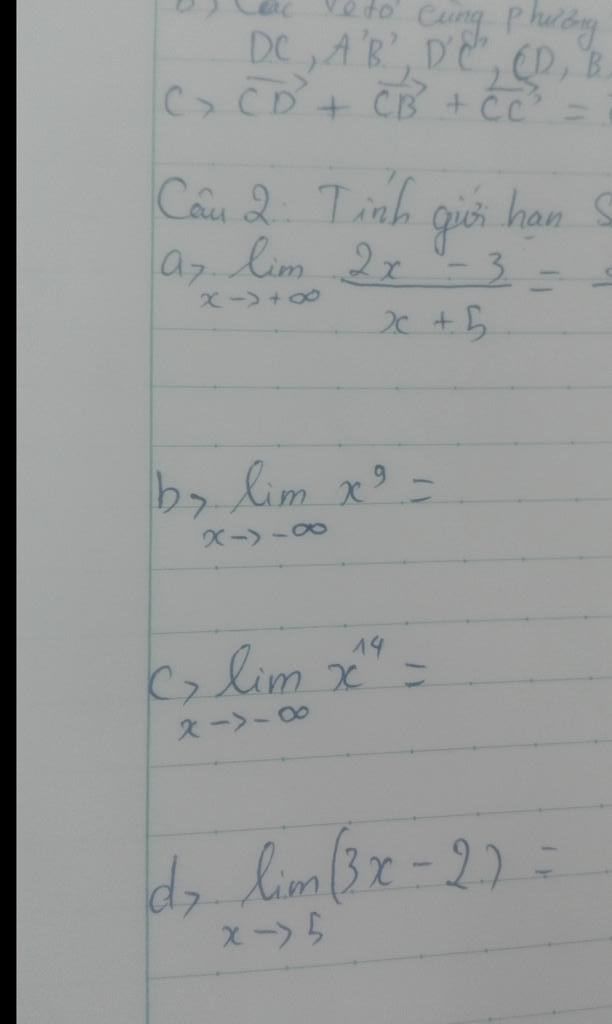 b, Các vectơ cùng phương
DC, A'B', D'C', CD, B
c, CD + CB + CC' =
Câu 2: Tính giới hạn S
a, lim 2x - 3 =
x -> +∞ x + 5
b, lim x⁹ =
x -> -∞
c, lim x¹⁴ =
x -> -∞
d, lim (3x - 2) =
x -> 5